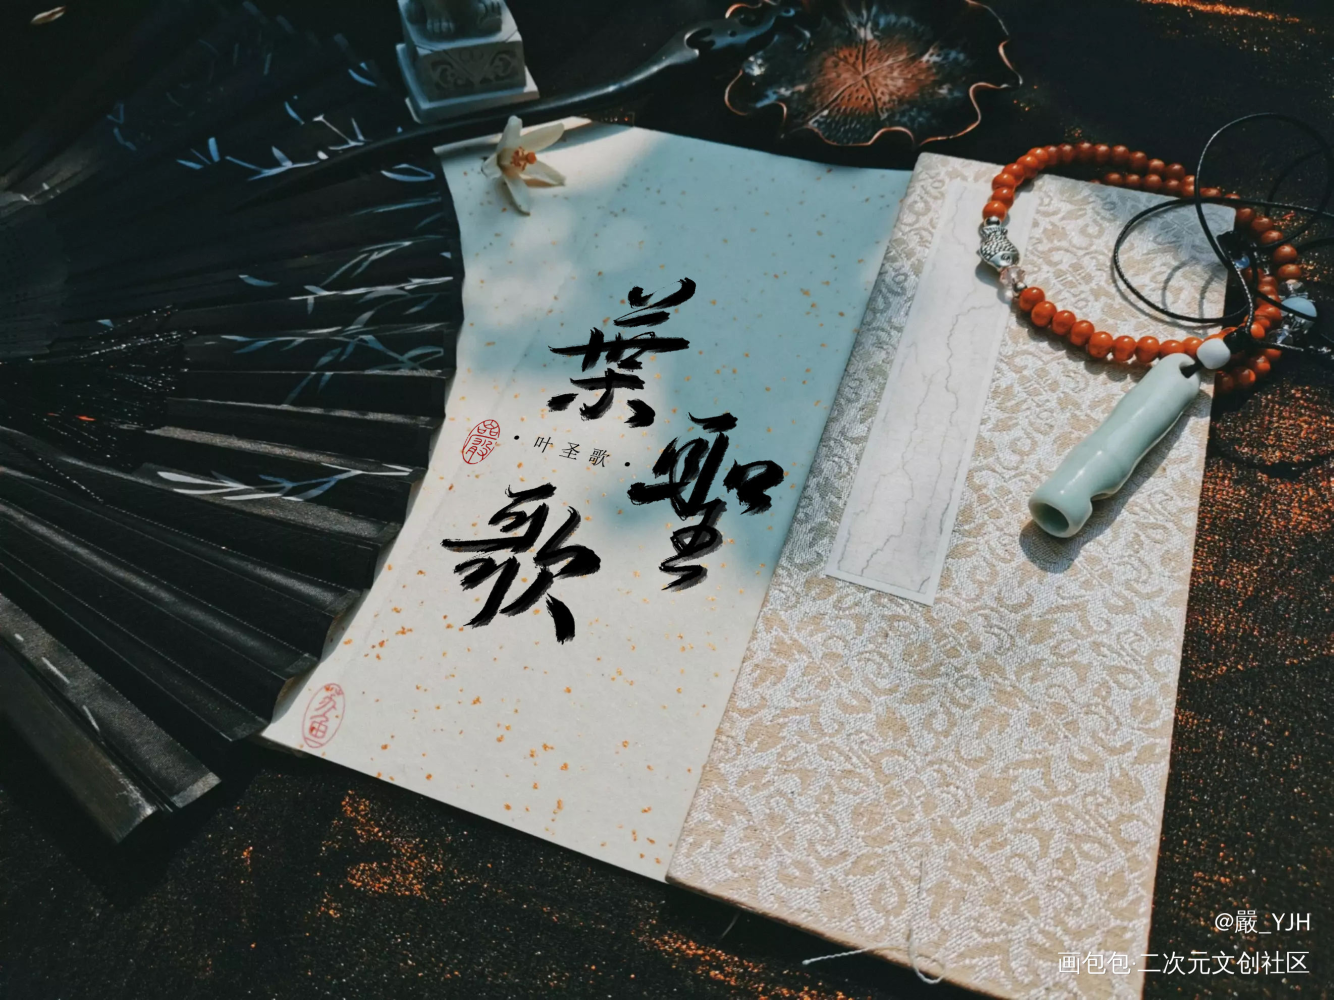 葉聖歌
·叶圣歌·
@嚴_YJH
画包包·二次元文创社区